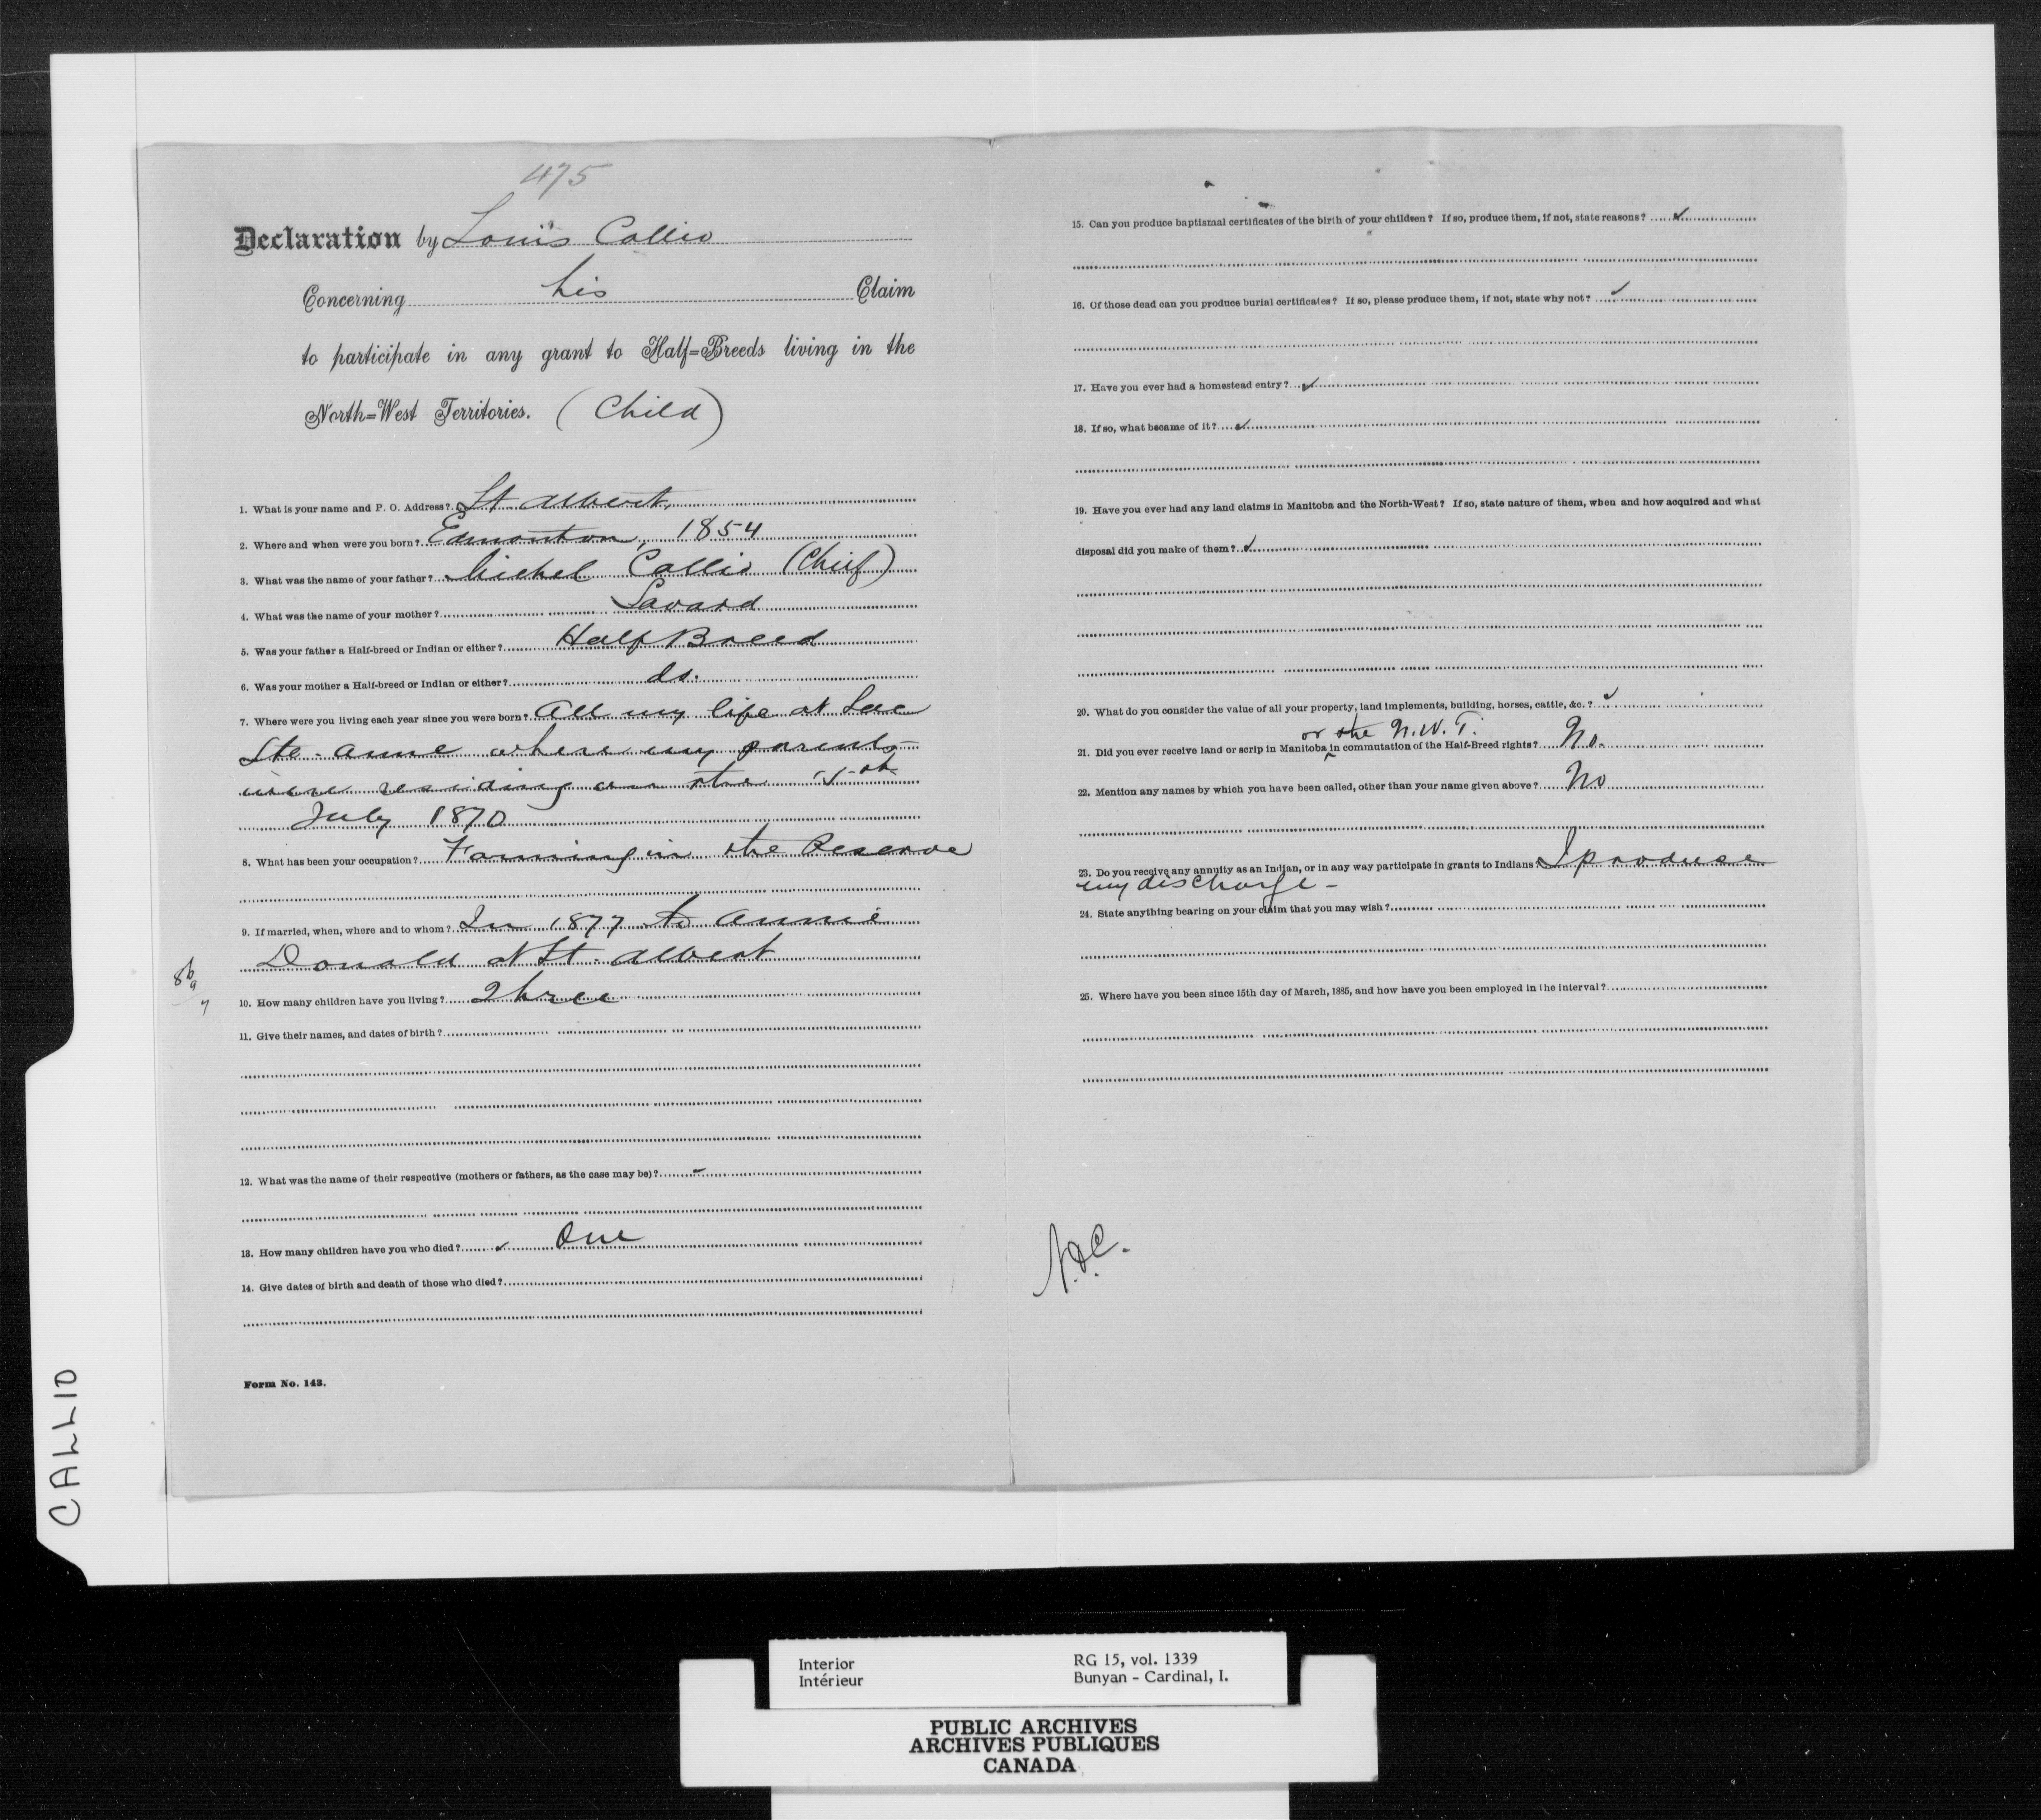 475
Declaration by Louis Callio
Concerning his Claim
to participate in any grant to Half=Breeds living in the
North=West Territories. (Child)
1. What is your name and P. O. Address? St. Albert.
2. Where and when were you born? Edmonton, 1854
3. What was the name of your father? Michel Callio (Chief)
4. What was the name of your mother? Savard
5. Was your father a Half-breed or Indian or either? Half Breed
6. Was your mother a Half-breed or Indian or either? do.
7. Where were you living each year since you were born? All my life at Lac
Ste. Anne where my parents
were residing on the 15th
July 1870
8. What has been your occupation? Farming in the Reserve
9. If married, when, where and to whom? In 1877 to Annie
Donald at St. Albert
10. How many children have you living? Three
11. Give their names, and dates of birth?
12. What was the name of their respective (mothers or fathers, as the case may be)?
13. How many children have you who died? One
14. Give dates of birth and death of those who died?
Form No. 143.
15. Can you produce baptismal certificates of the birth of your childeen? If so, produce them, if not, state reasons?
16. Of those dead can you produce burial certificates? If so, please produce them, if not, state why not?
17. Have you ever had a homestead entry?
18. If so, what became of it?
19. Have you ever had any land claims in Manitoba and the North-West? If so, state nature of them, when and how acquired and what
disposal did you make of them?
20. What do you consider the value of all your property, land implements, building, horses, cattle, &c.?
or the N.W.T.
21. Did you ever receive land or scrip in Manitoba in commutation of the Half-Breed rights? No.
22. Mention any names by which you have been called, other than your name given above? No
23. Do you receive any annuity as an Indian, or in any way participate in grants to Indians? I produce
my discharge -
24. State anything bearing on your claim that you may wish?
25. Where have you been since 15th day of March, 1885, and how have you been employed in the interval?
CALLIO
Interior RG 15, vol. 1339
Intérieur Bunyan - Cardinal, I.
PUBLIC ARCHIVES
ARCHIVES PUBLIQUES
CANADA